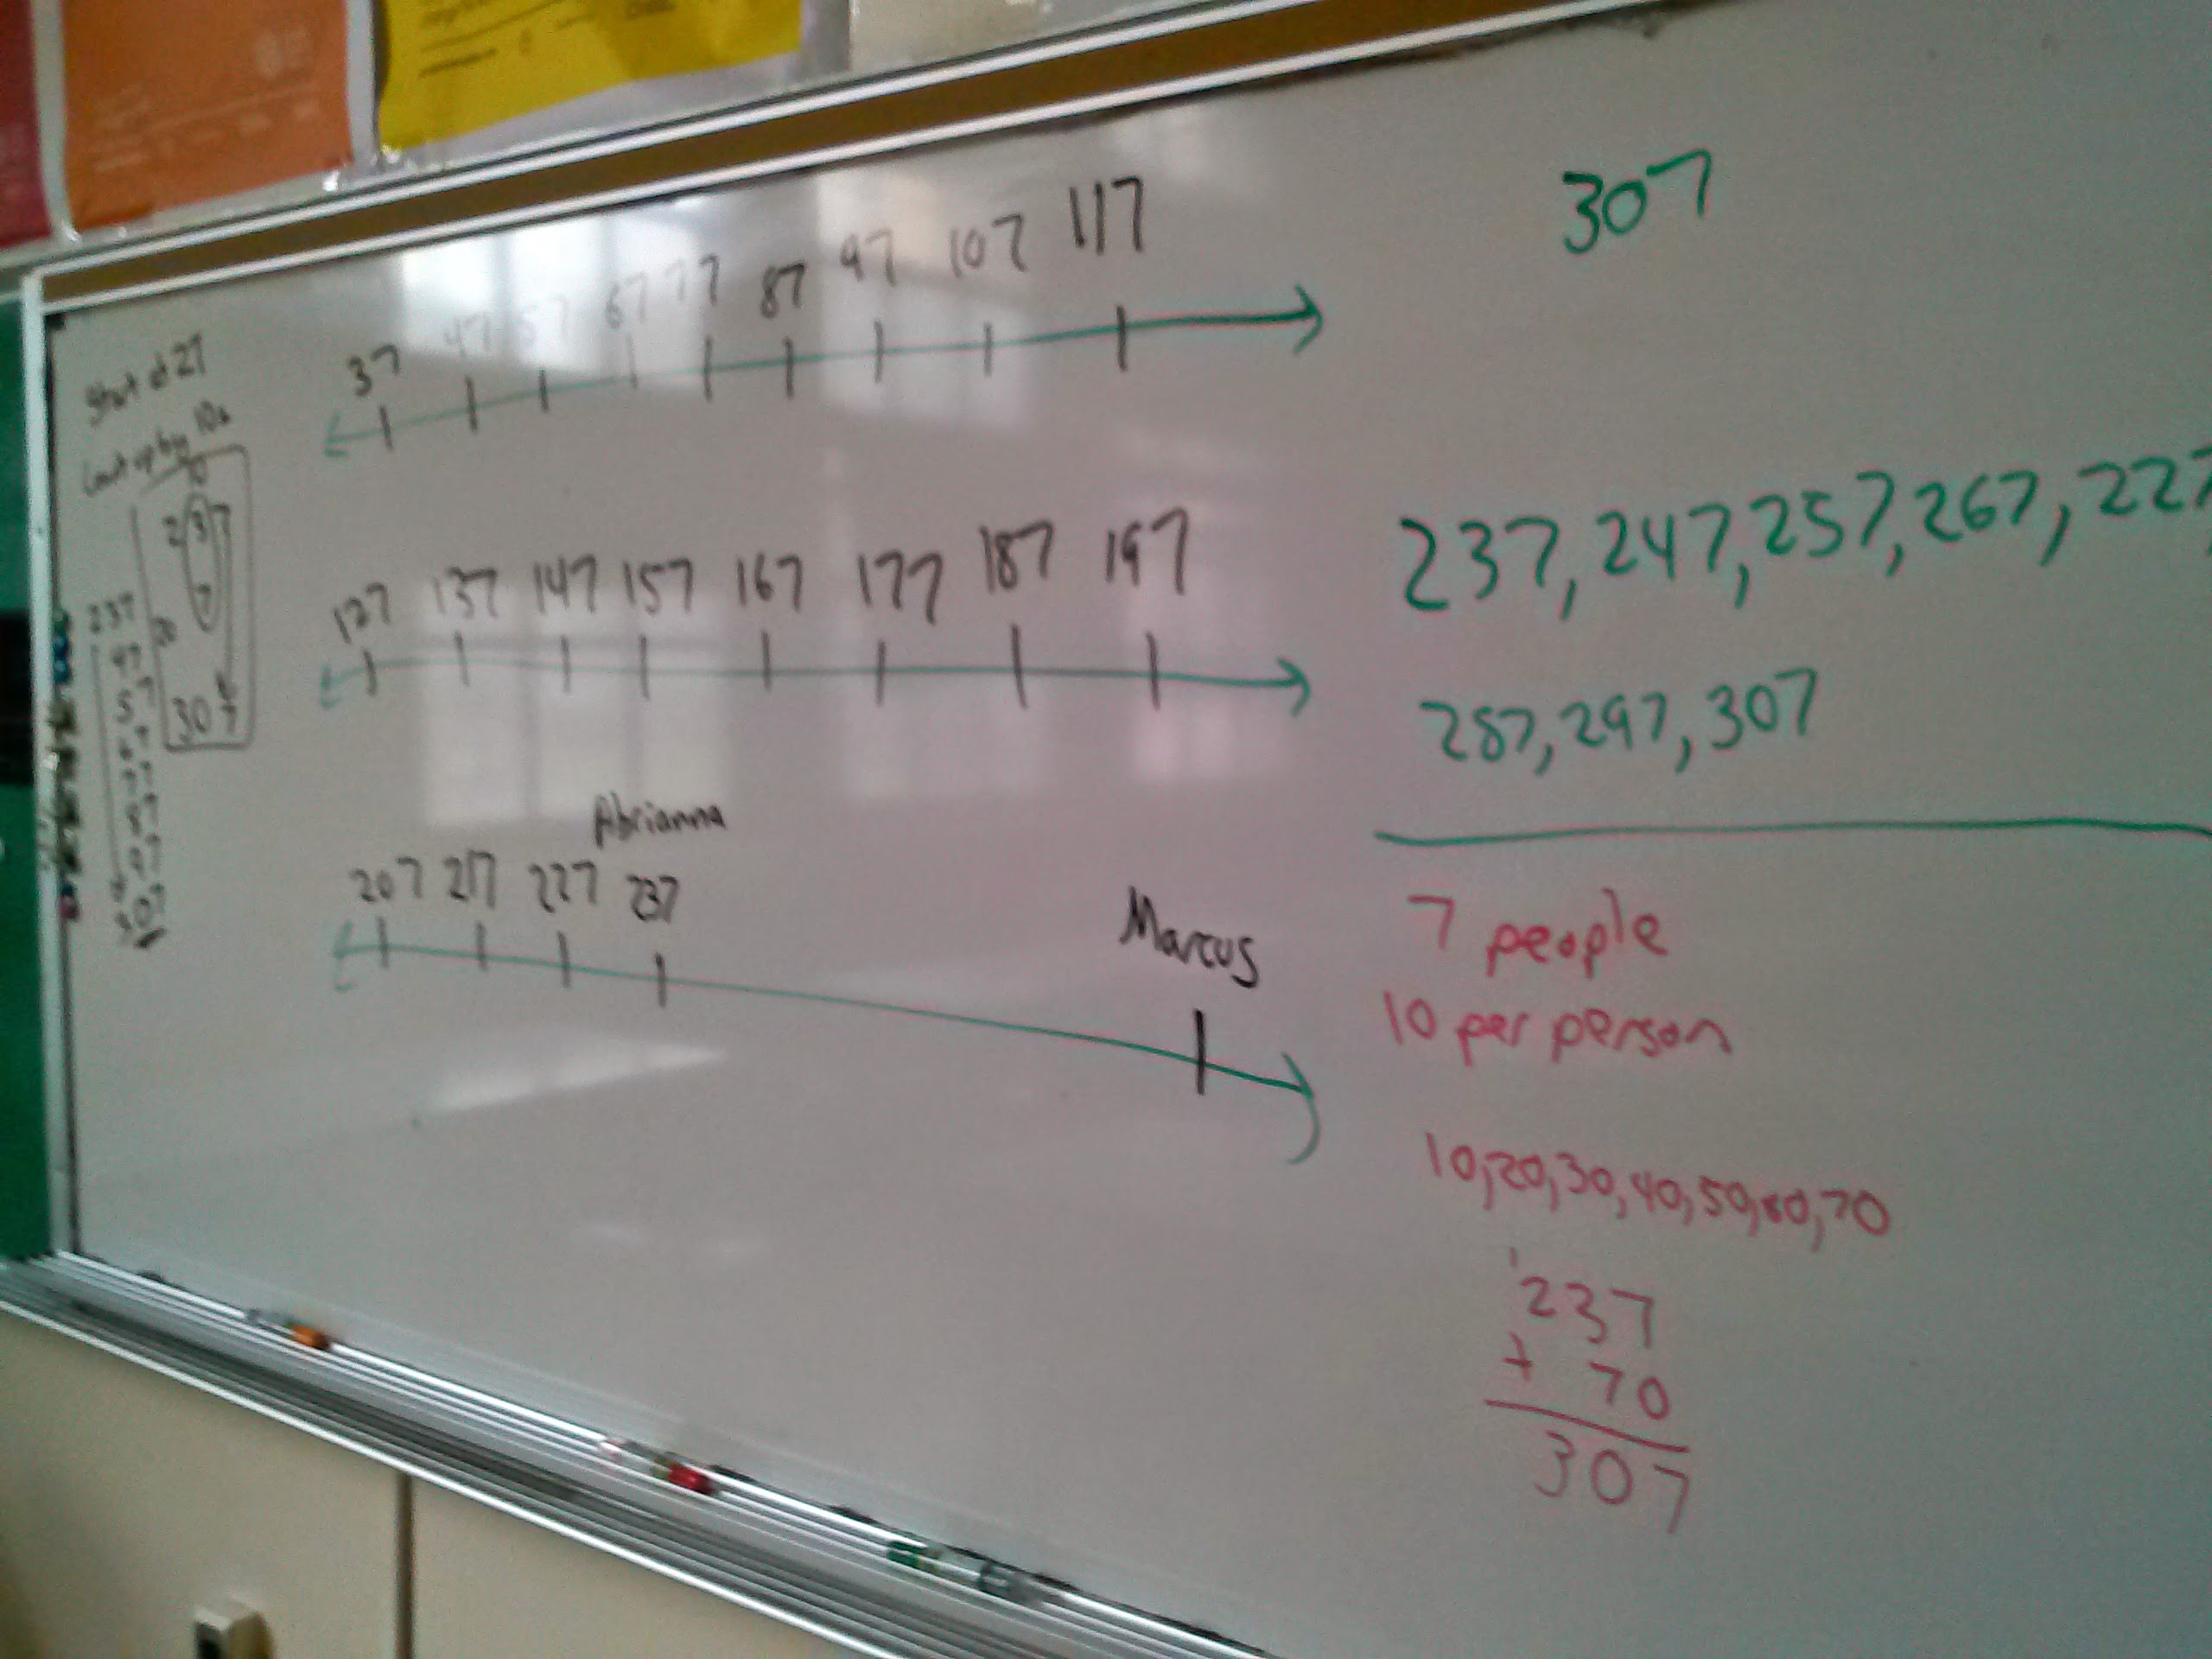 Start at 27
Count up by 10s
37 47 57 67 77 87 97 107 117
127 137 147 157 167 177 187 197
Abrianna
207 217 227 237
Marcus
237
47
57
67
77
87
97
07
10
237
7
30
307
307
237, 247, 257, 267, 227,
287, 297, 307
7 people
10 per person
10, 20, 30, 40, 50, 60, 70
1
237
+ 70
307